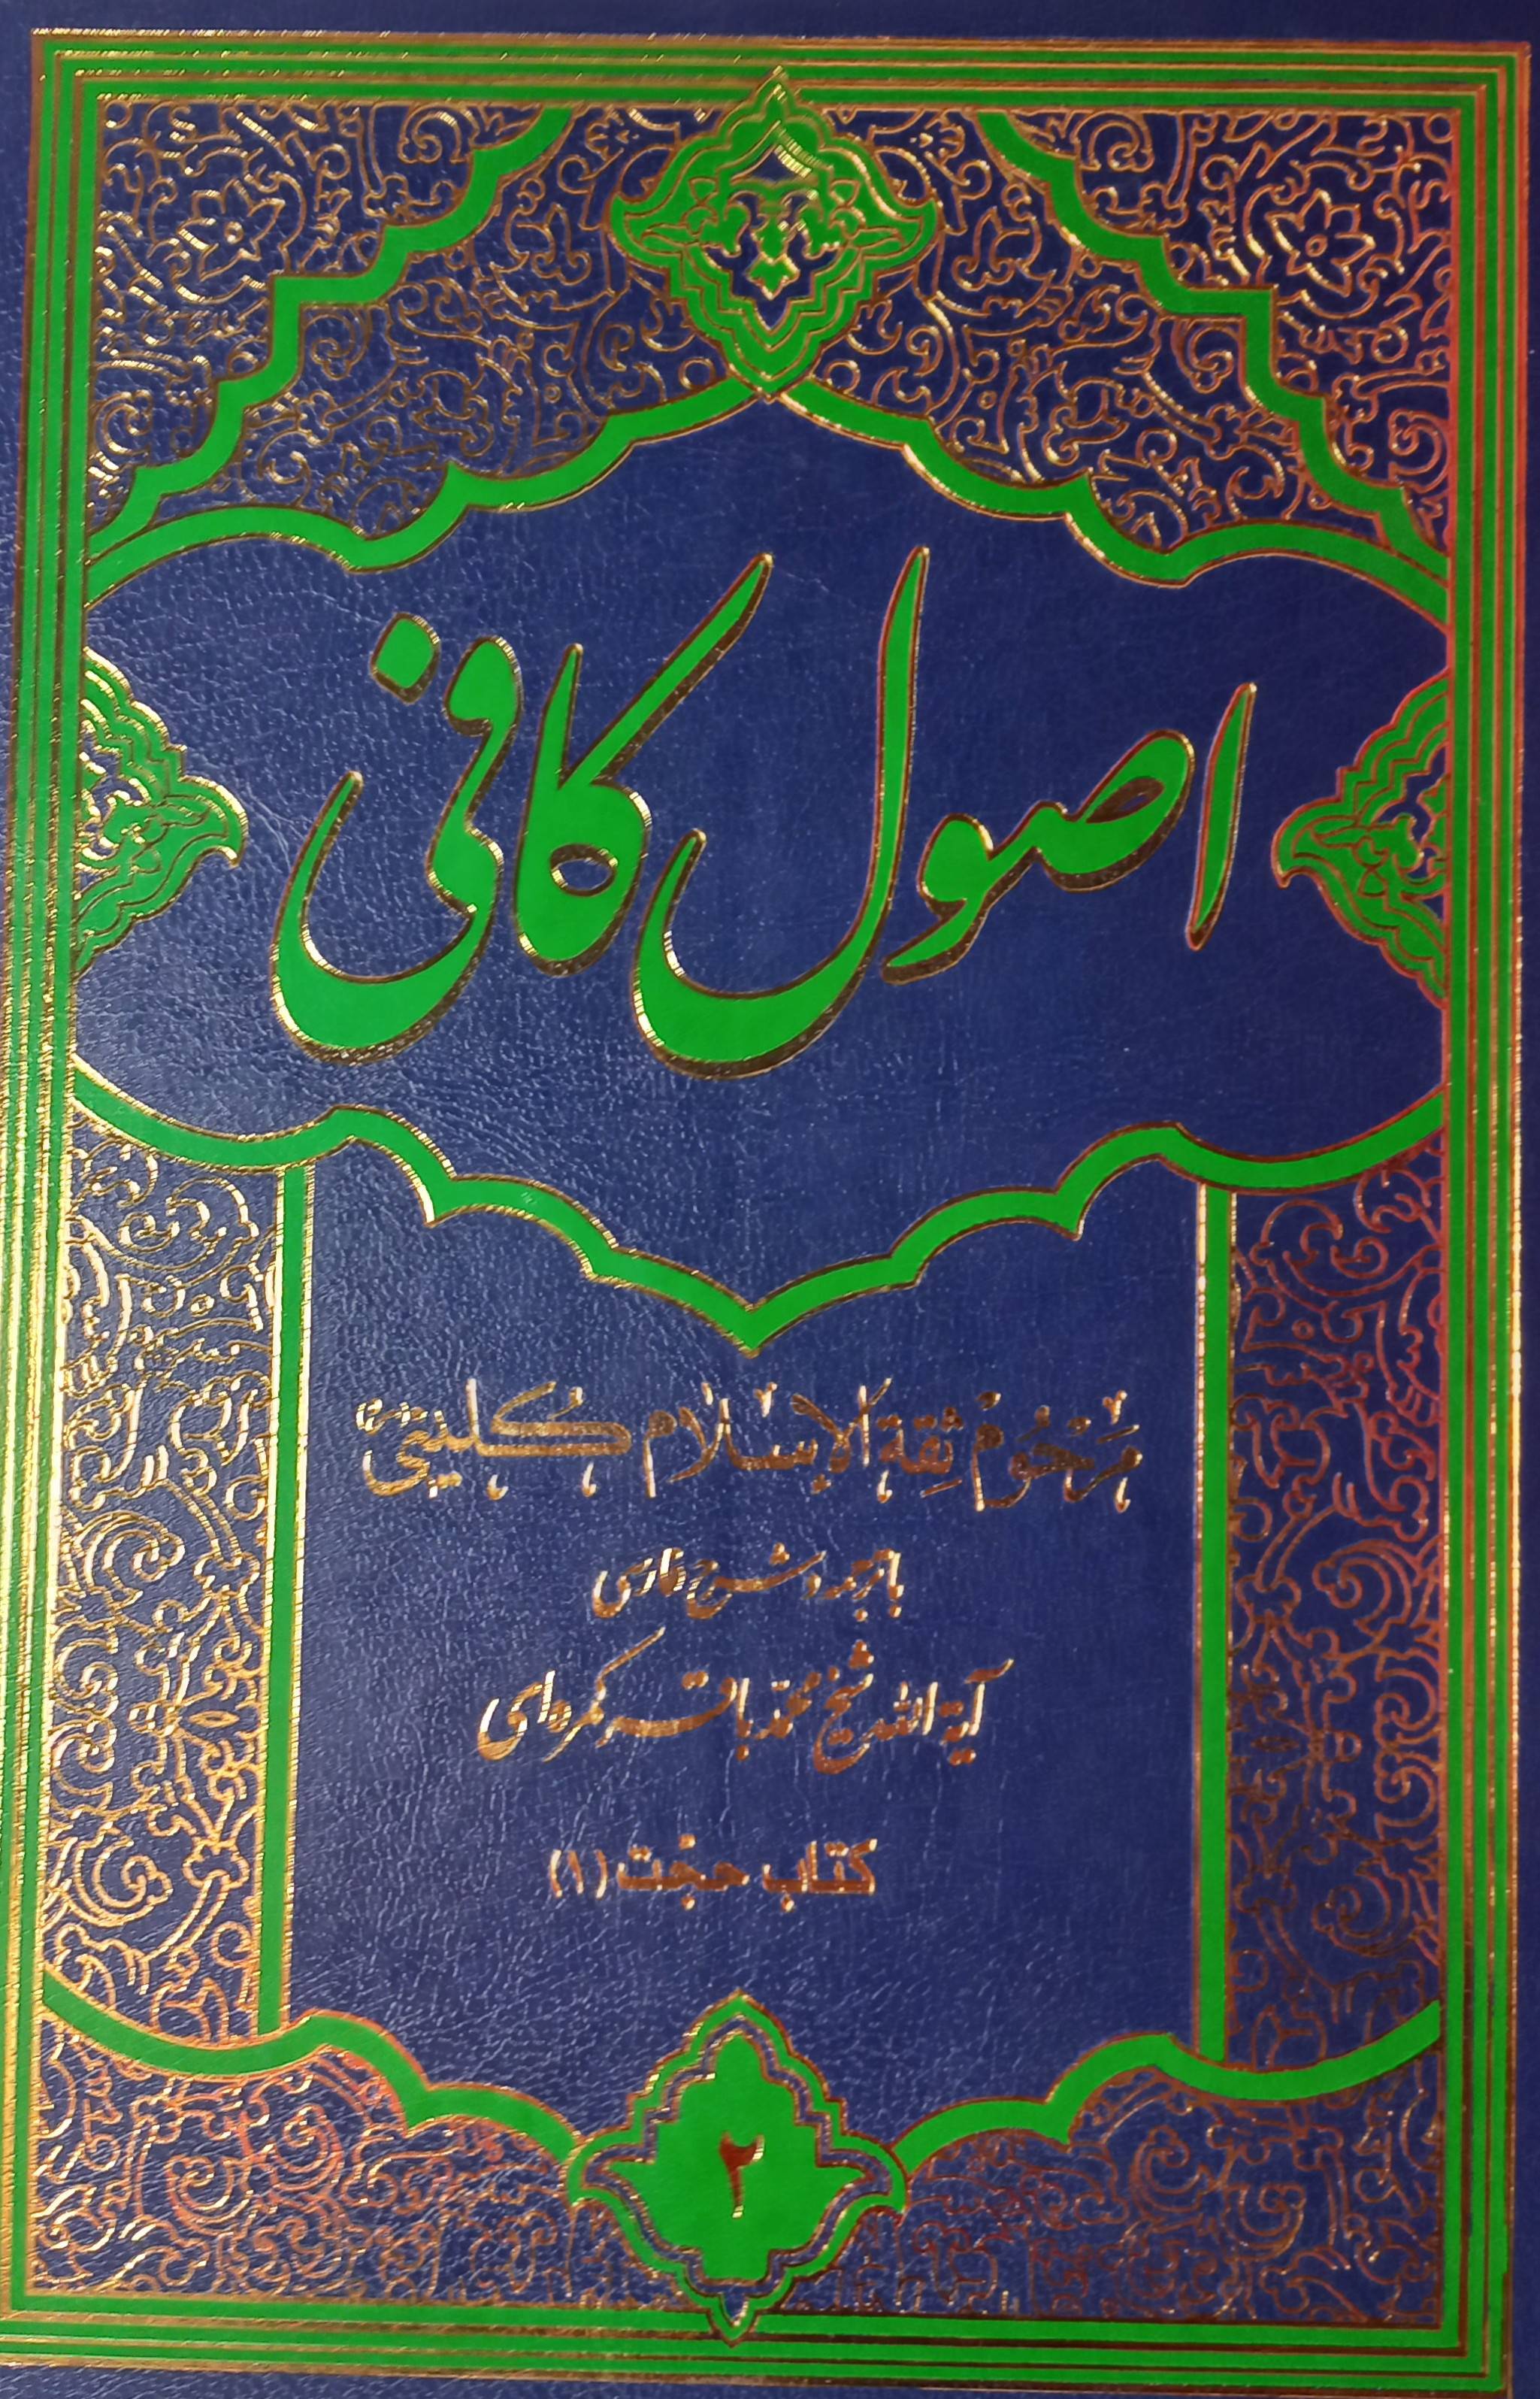 اصول کافی
مَرْحُوم ثِقَة الإسْلام کُلَینی
با ترجمه و شرح فارسی
آیة الله شیخ محمّد باقر کمره‌ای
کتاب حجّت (۱)
۲